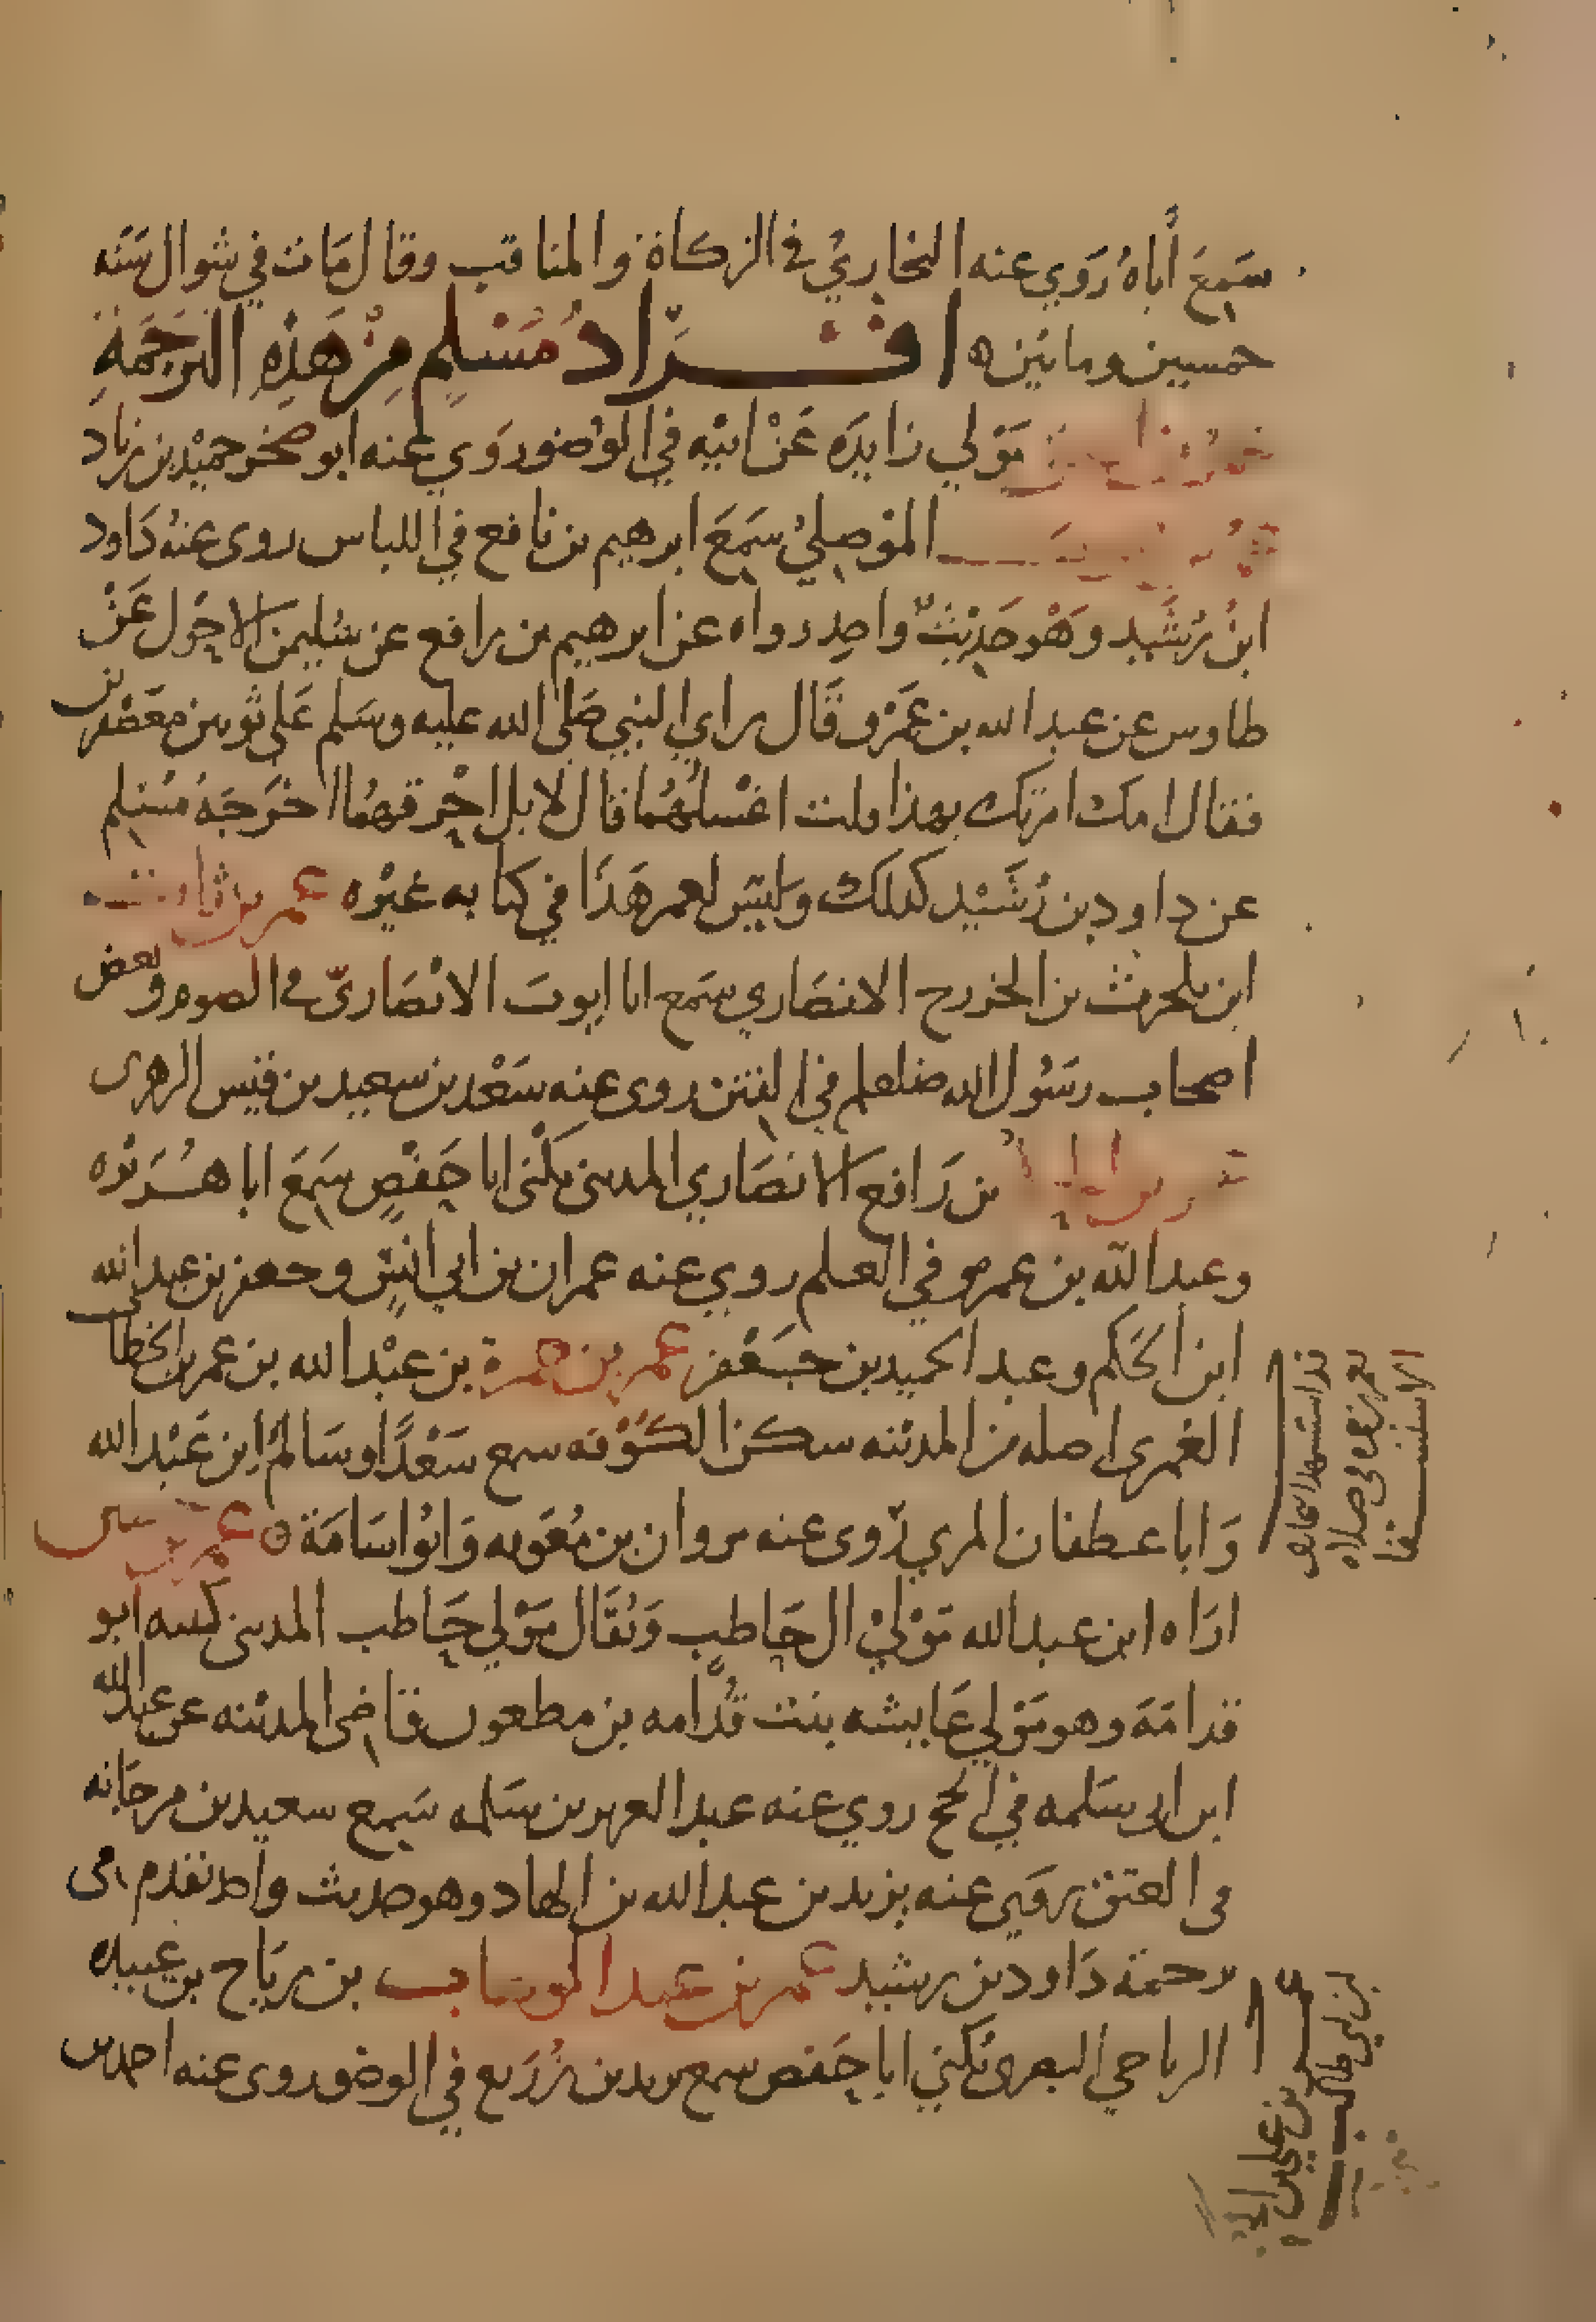 سَمِعَ أباهُ رَوي عنه البخاريُ في الزكاة والمناقب وقال مَات في شوال سَنَه
خمسين ومايتين ه افــراد مُسْلمٍ مِنْ هَذِهِ الترجَمَةِ
مَوْلي زايدَه عَنْ ابيْه في الوُضور وَي عنه ابو صخر حميْد بن زياد
الموْصِليُ سَمِعَ ابرهيم بن نافع في اللباس روى عنهُ دَاود
ابنُ رُشَيد وهْو حَدِيْثٌ واحِد رواه عن ابرهيم بن رافع عن سُليمن الاحْوَل عَنْ
طاوس عن عبد الله بن عَمْرو قَال راي النبي صَلى الله عليه وسَلم عَلى ثوبين معَصْفرين
فقال امك امرتك بهذا ولت اغْسلهُما قال لا بل احْرقهُما اخرَجَهُ مسْلم
عن داود بن رُشَيْد كذلك وَليسَ لعمر هَذا في كتابه غيْره عمر بن ثابت
ابن بلحرث بن الخزرج الانصَاري سَمع ابا ايوبَ الانْصَاريّ في الصوم وبعض
اصحاب رسَوُل الله صلعلم في الفتن روى عنه سَعْد بن سعيد بن قيس الزهرى
بن رَافع الانصَاري المدىنى يكْنى ابا حَفْصٍ سَمِعَ ابا هُـرَيْره
وعبد الله بن عمرو في العلم روي عنه عمران بن ابي انيَسٍ وجعفر بن عبد الله
ابن الحَكم وعبد الحميد بن جَعْفر عمر بن حمزة بن عبْد الله بن عمر بن الخطاب
العُمرى اصله من المدينه سكن الكوُفه سمع سَعْدًا وسَالمُ ابن عَبْد الله
وَابا عطفان المري رَوى عنه مروان بن مُعَويه وَابوُ اسَامَة ه عمر بن حسين
ارَاه ابن عبد الله مَوْليْ ال حَاطب وَيُقَال مَوْلي حَاطب المدينى كنيته ابو
قدامَة وهو مَوْلي عَايشه بنت قُدَامه بن مطعون قاضى المدينه عن عبد الله
ابن ابى سَلمه في الحج روي عنه عبد العزيز بن سَلمه سَمع سعيد بن مرجَانه
فى العتق روَي عنه يزيد بن عبد الله بن الهاد وهو حديث واحد تقدم فى
ترجمة دَاود بن رشيد عمر بن عبد الوهاب بن ريَاح بن عبيده
الرياحي البصرى يُكني ابا حَفص سمع يزيد بن زُرَيع في الوضو روى عنه احمد بن